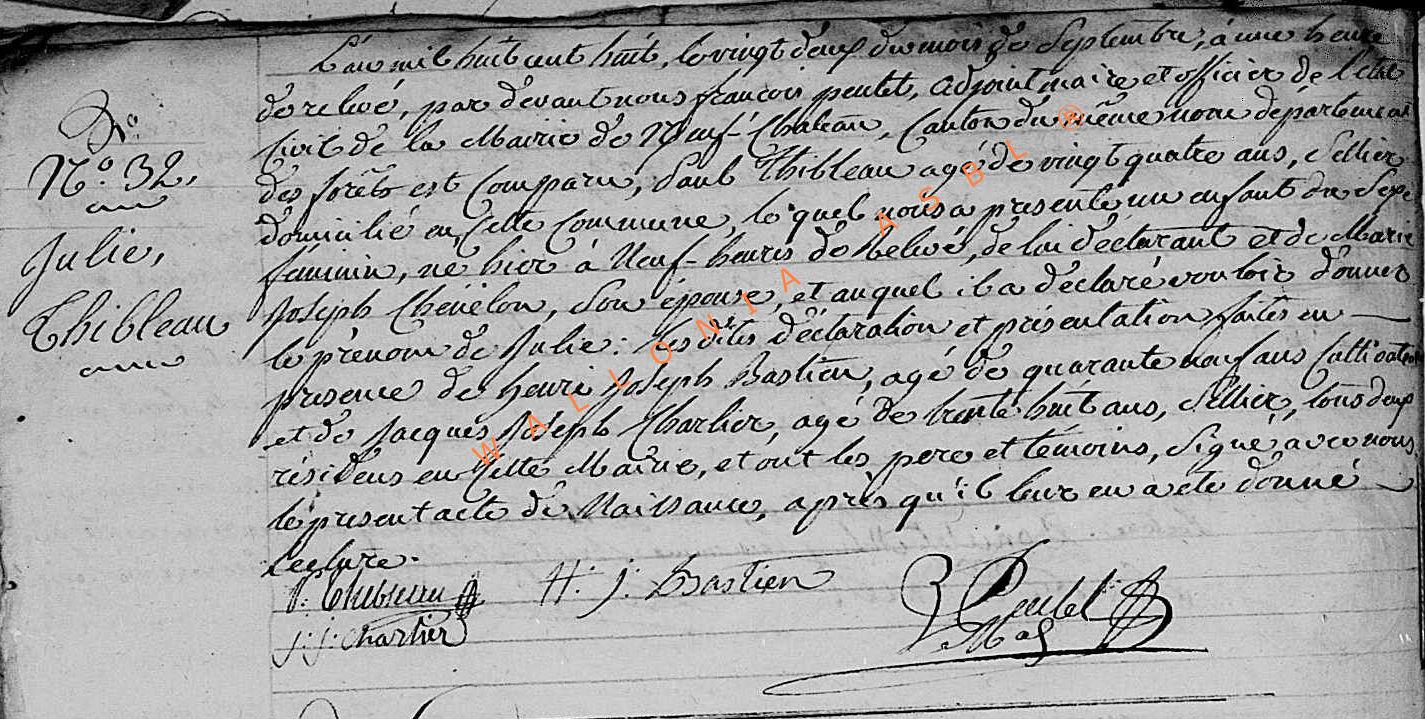 No.
No. 32,
Julie,
Thibleau
L'an mil huit cent huit, le vingt deux du mois de Septembre, à une heure
de relevé, par devant nous françois peutet, adjoint maire et officier de l'etat
Civil de la Mairie de Neuf-Chateau, Canton du même nom département
des forêts est Comparu, paul Thibleau agé de vingt quatre ans, Sellier
domicilié en Cette Commune, lequel nous a presenté un enfant du Sexe
feminin, né hier à Neuf-heures de Relevé, de lui déclarant et de Marie
Joseph Chenêlon, Son épouse, et auquel il a déclaré vouloir donner
le prénom de Julie: les dites déclaration et présentation faites en
presence de henri Joseph Bastien, agé de quarante neuf ans Cultivateur
et de Jacques Joseph Charlier, agé de trente huit ans, Sellier, tous deux
résidens en Cette Mairie, et ont les pere et témoins, Signé avec nous
le present acte de Naissance, après qu'il leur en a été donné
Lecture.
P. Thibleau H: j: Bastien
j: j: charlier
WALLONIA ASBL ®